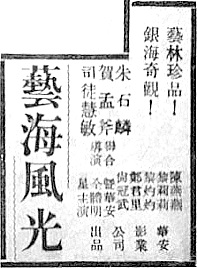 藝林珍品!
銀海奇觀!
朱石麟
賀孟斧
司徒慧敏
聯合
導演
陳燕燕
黎莉莉
黎灼灼
鄭君里
尚冠武
暨華安
全體明
星主演
華安
影業
公司
出品
藝海風光